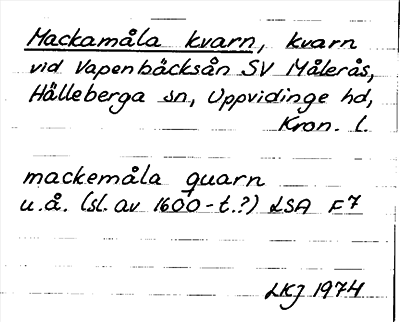 Mackamåla kvarn, kvarn
vid Vapenbäcksån SV Målerås,
Hälleberga sn, Uppvidinge hd,
Kron. l.
mackemåla quarn
u.å. (sl. av 1600-t.?) LSA F7
LKJ 1974